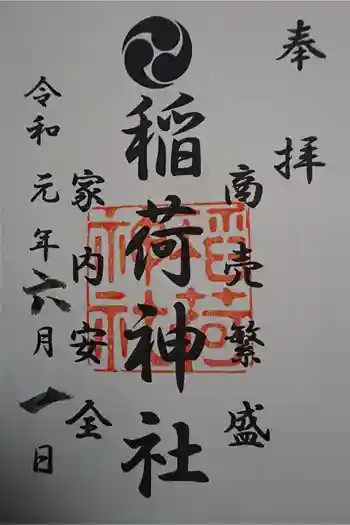 奉拝
商売繁盛
稲荷神社
家内安全
令和元年六月一日
稲荷
神社